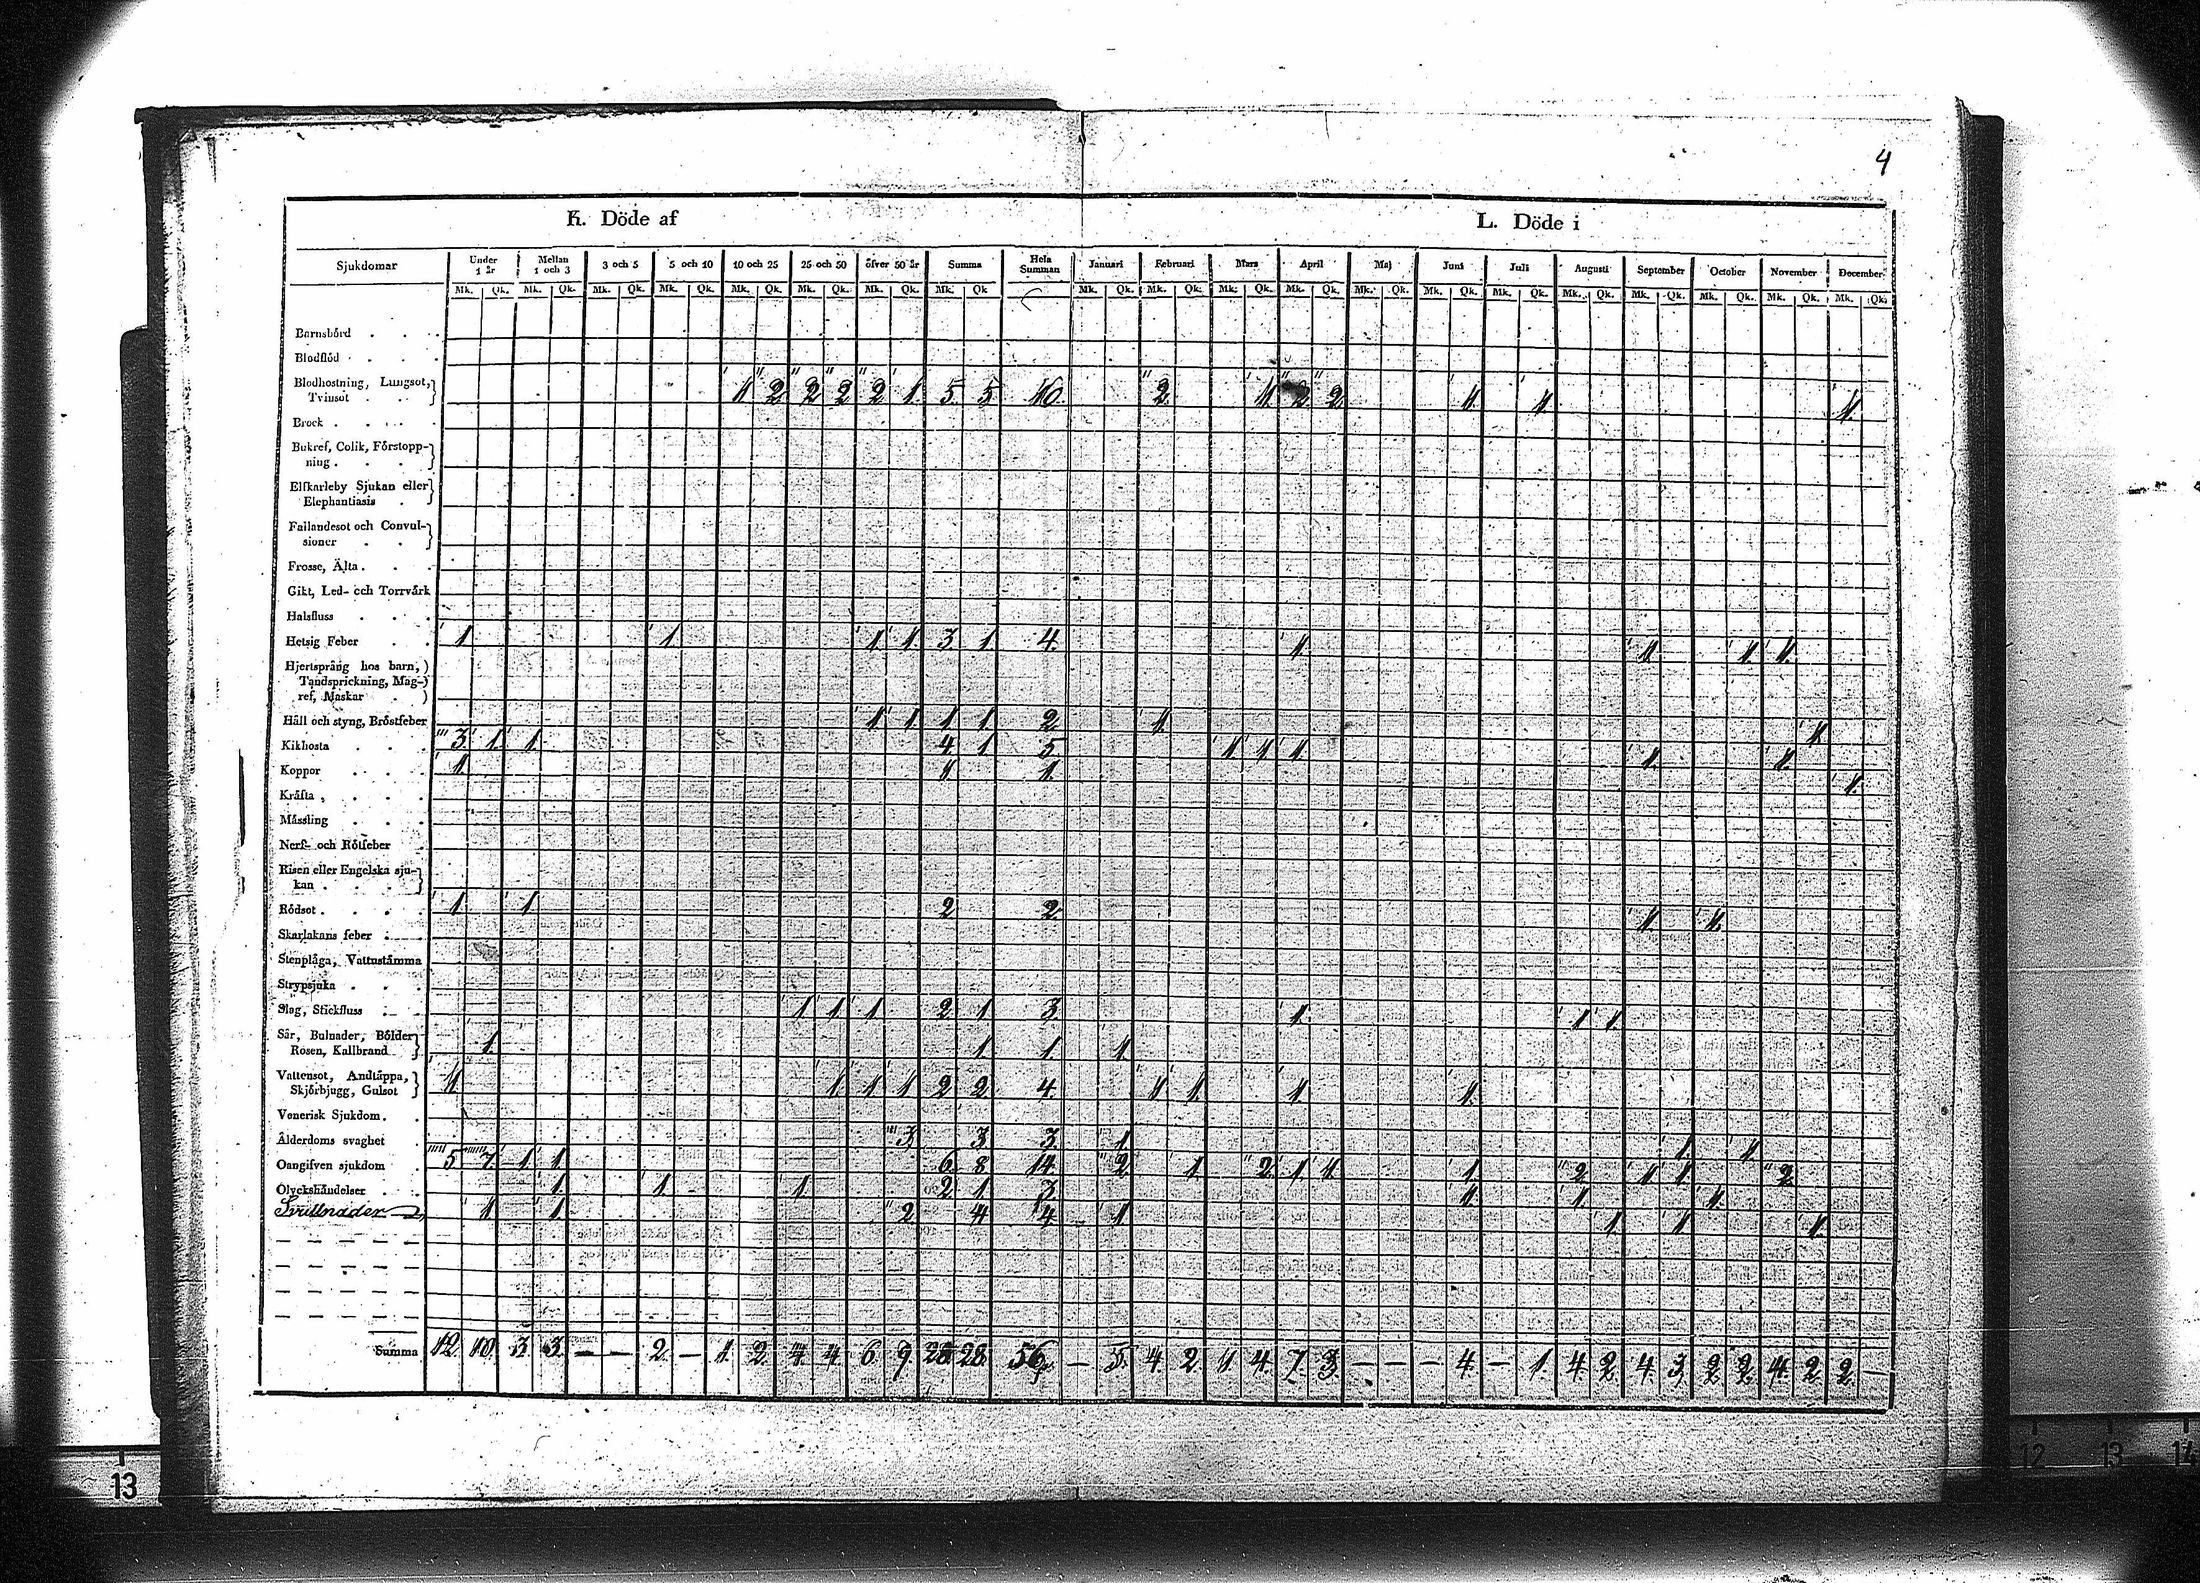 4
K. Döde af L. Döde i
Sjukdomar Under 1 år Mellan 1 och 3 3 och 5 5 och 10 10 och 25 25 och 50 öfver 50 år Summa Hela Summan Januari Februari Mars April Maj Juni Juli Augusti September October November December
Mk. Qk. Mk. Qk. Mk. Qk. Mk. Qk. Mk. Qk. Mk. Qk. Mk. Qk. Mk. Qk. Mk. Qk. Mk. Qk. Mk. Qk. Mk. Qk. Mk. Qk. Mk. Qk. Mk. Qk. Mk. Qk. Mk. Qk. Mk. Qk. Mk. Qk. Mk. Qk.
Barnsbörd
Blodflöd
Blodhostning, Lungsot,
Tvinsot 1 2 2 2 2 1. 5 5 10. 2. 1 2 2 1. 1 1.
Brock
Bukref, Colik, Förstopp-
ning
Elfkarleby Sjukan eller
Elephantiasis
Fallandesot och Convul-
sioner
Frosse, Älta
Gikt, Led- och Torrvärk
Halsfluss
Hetsig Feber 1. 1. 1 1. 3 1 4. 1. 1. 1 1.
Hjertsprång hos barn,
Tandsprickning, Mag-
ref, Maskar
Håll och styng, Bröstfeber 1 1. 1 1. 2 1. 1
Kikhosta 3 1. 1. 4 1 5 1 1 1. 1. 1.
Koppor 1. 1 1. 1.
Kräfta
Mässling
Nerf- och Rötfeber
Risen eller Engelska sju-
kan
Rödsot 1 1 2 2 1 1.
Skarlakans feber
Stenplåga, Vattustämma
Strypsjuka
Slag, Stickfluss 1 1 1 2 1 3 1. 1 1.
Sår, Bulnader, Bölder
Rosen, Kallbrand 1. 1 1. 1.
Vattensot, Andtäppa,
Skjörbjugg, Gulsot 1 1 1 1 2 2 4. 1 1. 1. 1.
Venerisk Sjukdom
Ålderdoms svaghet 3 3 3 1 1 1
Oangifven sjukdom 5 7 1 1 6 8 14 2 1 2 1 1 1 2 1 1 2
Olyckshändelser 1 1 1 2 1 3 1 1 1.
1 1 2 4 4 1 1 1 1.
Summa 12 10 3 3 — — 2 — 1 2 4 4 6 9 28 28 56 — 5. 4 2 1 4. 7 3 — — — 4. — 1. 4 2 4 3 2 2 4 2 2 —
13 12 13 14